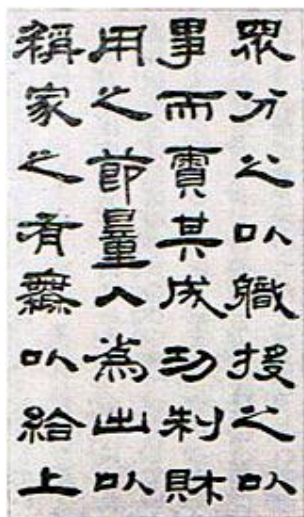 眾分之以職授之以
事而責其成功制財
用之節量入為出以
稱家之有無以給上